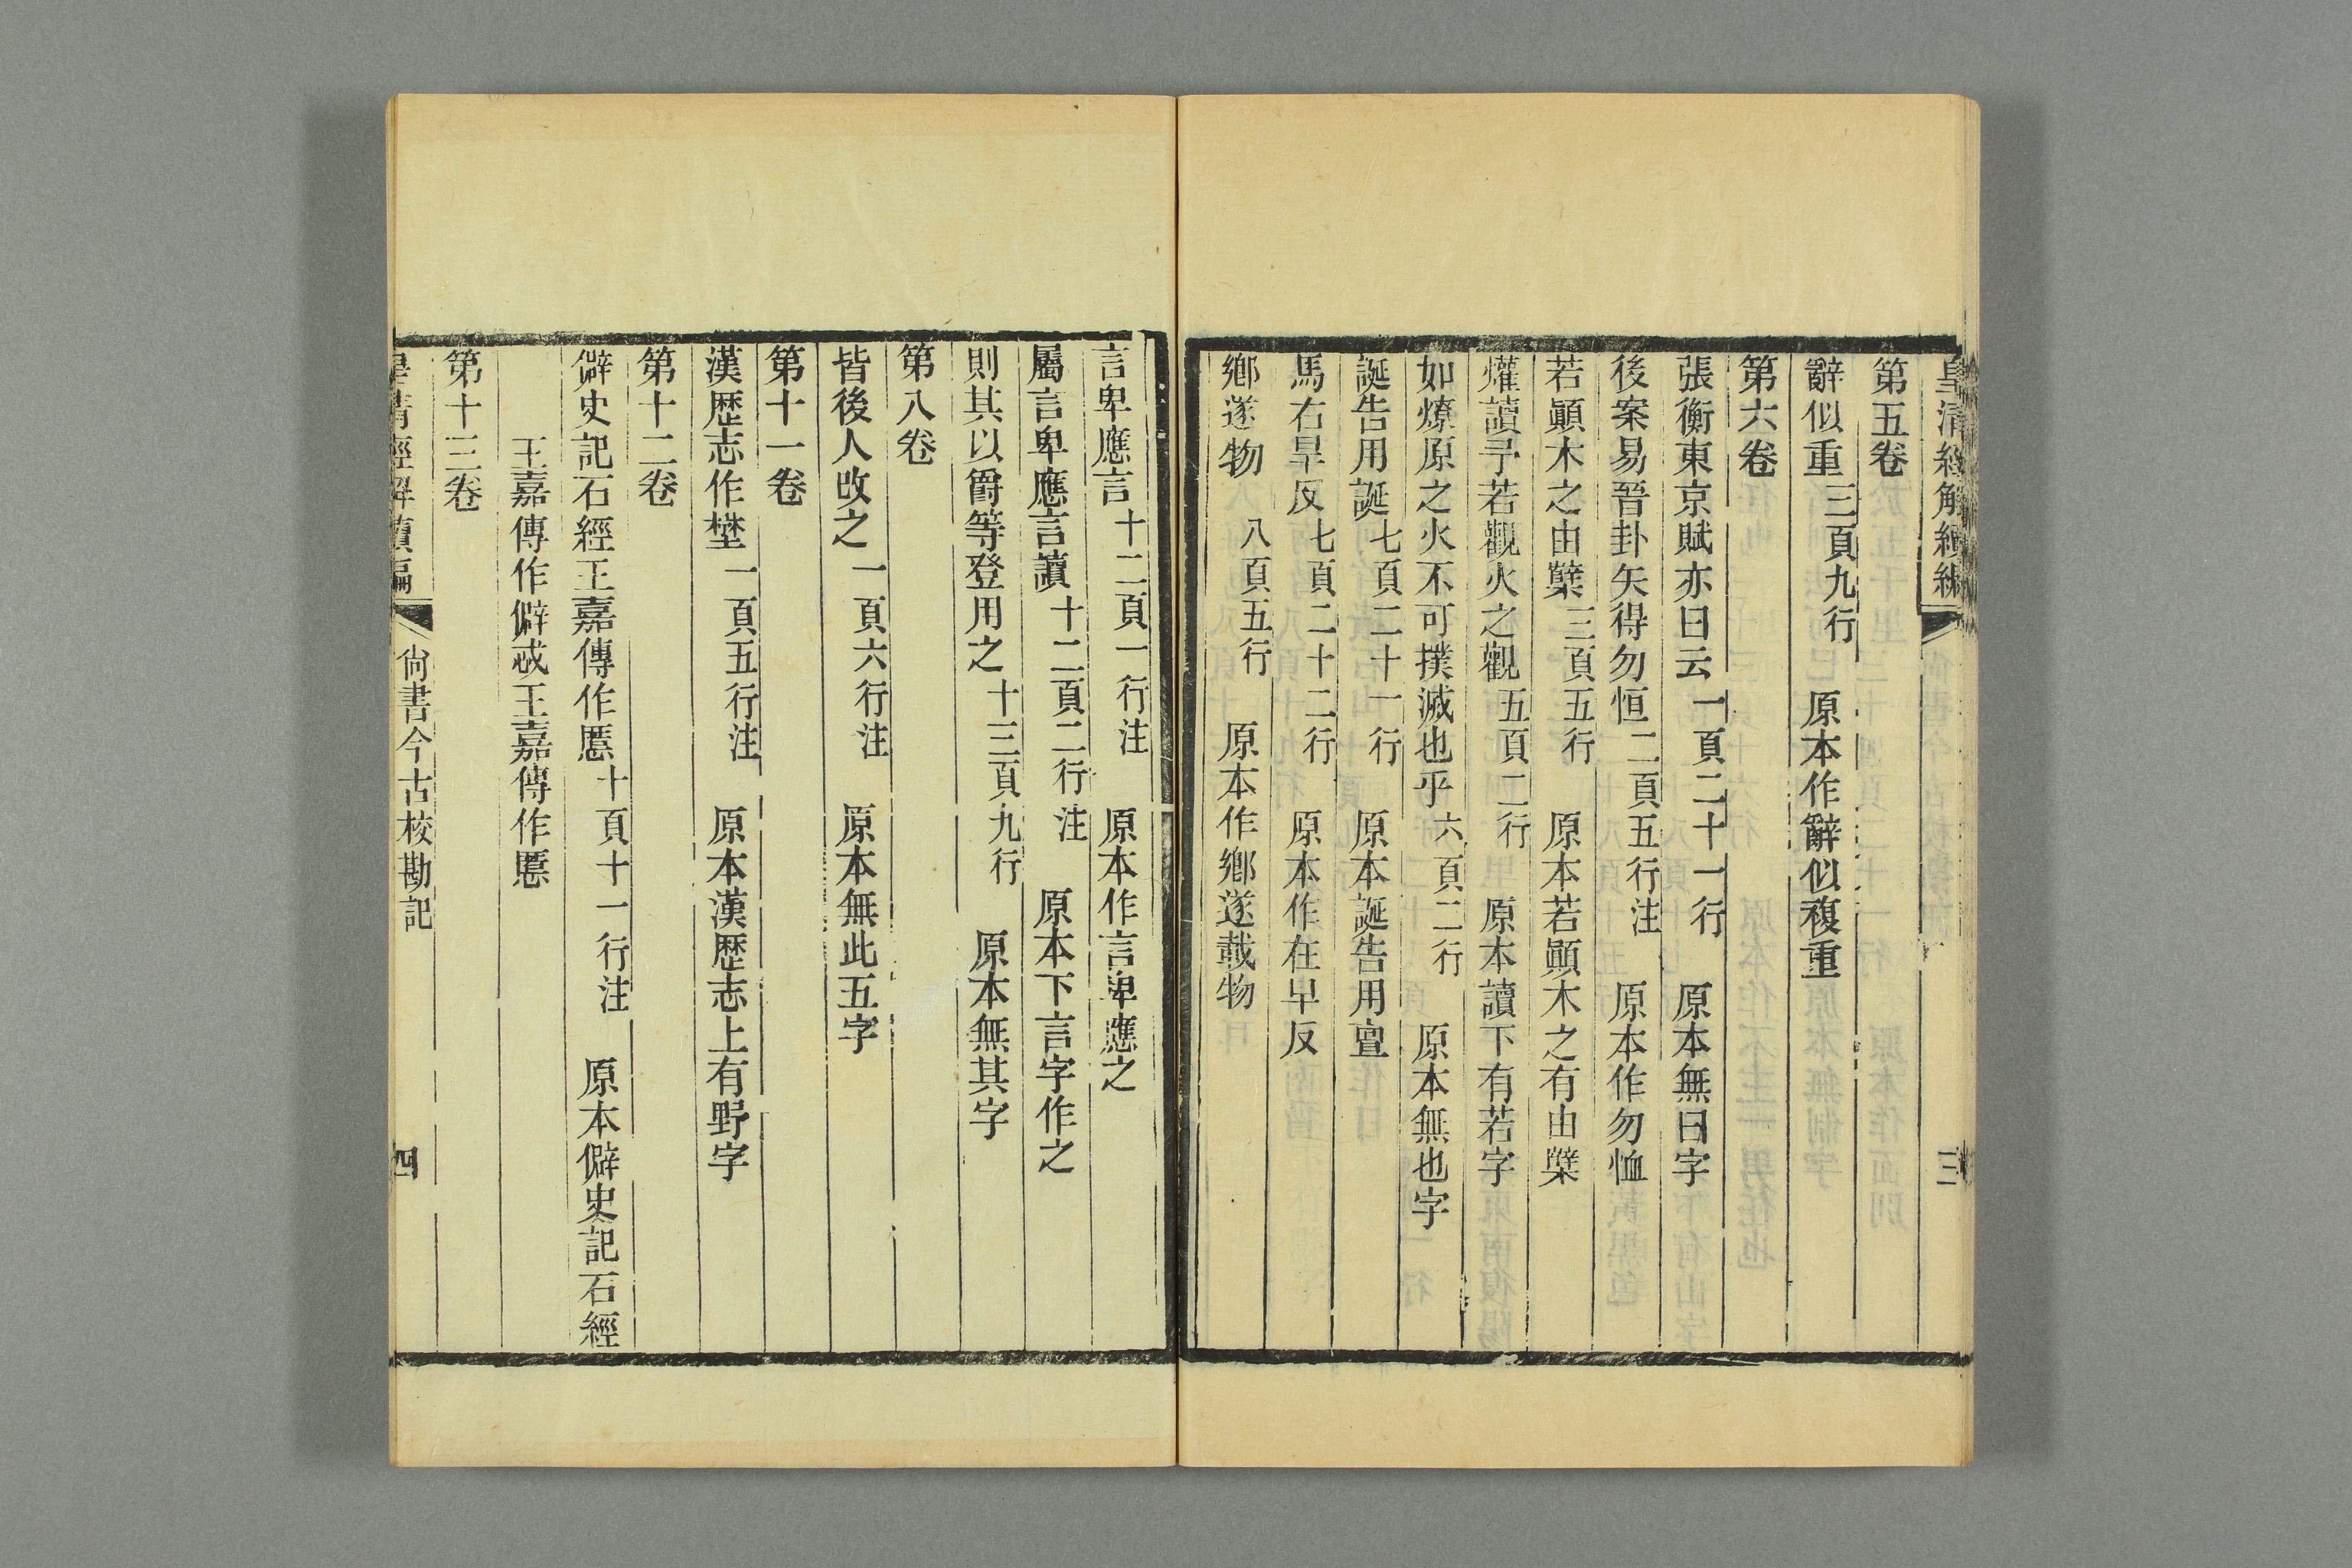 皇清經解續編 三
第五卷
辭似重 三頁九行 原本作辭似複重
第六卷
張衡東京賦亦曰云 一頁二十一行 原本無曰字
後案易晉卦矢得勿恒 二頁五行注 原本作勿恤
若顚木之由櫱 三頁五行 原本若顚木之有由櫱
爟讀予若觀火之觀 五頁二行 原本讀下有若字
如燎原之火不可撲滅也乎 六頁二行 原本無也字
誕告用誕 七頁二十一行 原本誕告用亶
馬右旱反 七頁二十二行 原本作在早反
鄉遂物 八頁五行 原本作鄉遂載物
言卑應言 十二頁一行注 原本作言卑應之
屬言卑應言讀 十二頁二行注 原本下言字作之
則其以爵等登用之 十三頁九行 原本無其字
第八卷
皆後人改之 一頁六行注 原本無此五字
第十一卷
漢歷志作埜 一頁五行注 原本漢歷志上有野字
第十二卷
僻史記石經王嘉傳作慝 十頁十一行注 原本僻史記石經
王嘉傳作僻忒王嘉傳作慝
第十三卷
皇清經解續編 尙書今古校勘記 四